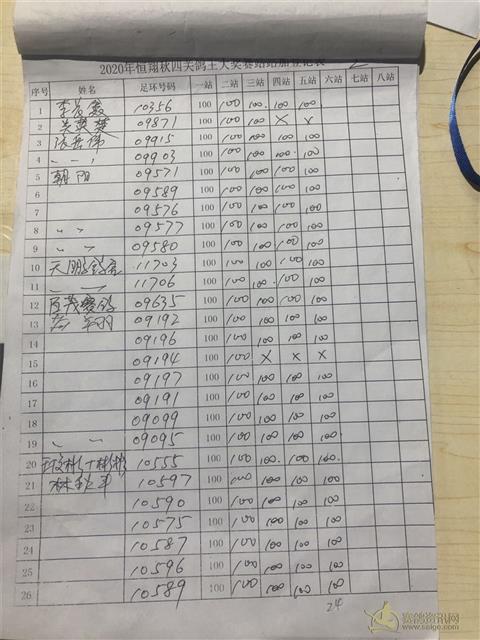 2020年恒翔秋四关鸽王大奖赛站站加登记表
序号 姓名 足环号码 一站 二站 三站 四站 五站 六站 七站 八站
1 10356 100 100 100 100 100
2 09871 100 100 100 × ×
3 09915 100 100 100 100 100
4 〃 〃 09903 100 100 100 100 100
5 朝阳 09571 100 100 100 100 100
6 09589 100 100 100 100 100
7 09576 100 100 100 100 100
8 〃 〃 09577 100 100 100 100 100
9 〃 〃 09580 100 100 100 100 100
10 11703 100 100 100 100 100
11 〃 〃 11706 100 100 100 100 100
12 09635 100 100 100 100 100
13 09192 100 100 100 100 100
14 09196 100 100 100 100 100
15 09194 100 100 × × ×
16 09197 100 100 100 100 100
17 09191 100 100 100 100 100
18 09099 100 100 100 100 100
19 〃 〃 09095 100 100 100 100 100
20 10555 100 100 100 100 100
21 10597 100 100 100 100 100
22 10590 100 100 100 100 100
23 10575 100 100 100 100 100
24 10587 100 100 100 100 100
25 10596 100 100 100 100 100
26 10589 100 100 100 100 100
24
赛鸽资讯网
www.saige.com